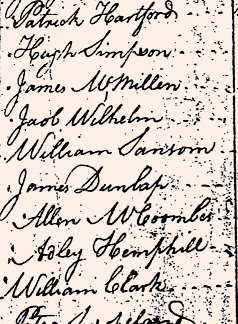 Patrick Hartford
Hugh Simpson
James McMillen
Jacob Wilhelm
William Sansom
James Dunlap
Allen McCoombes
Adley Hemphill
William Clark